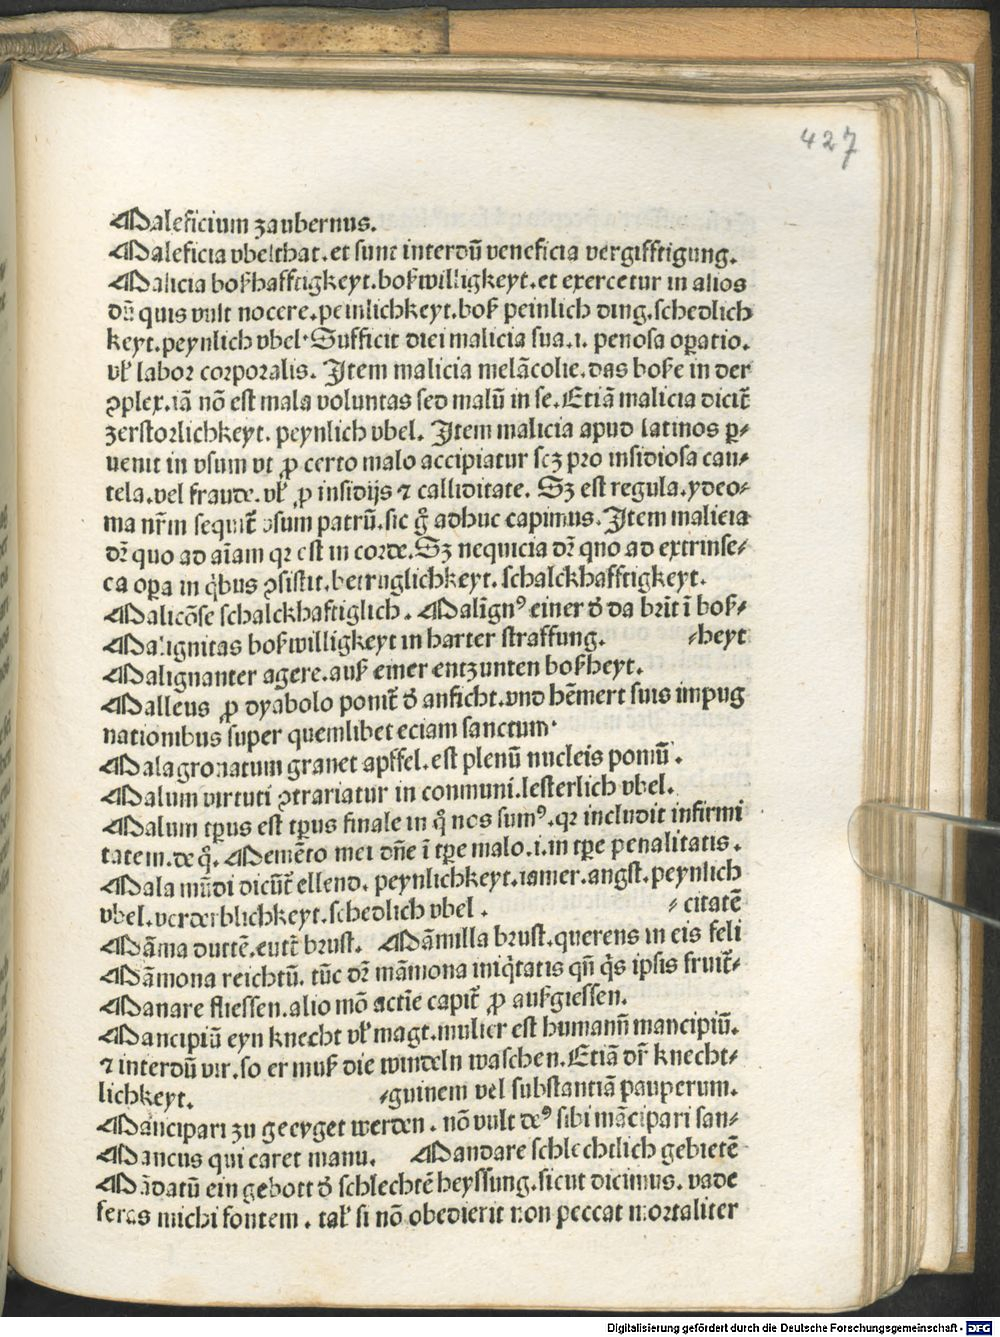 427
Maleficium zaubernus.
Maleficia vbelthat. et sunt interdū veneficia vergifftigung.
Malicia boßhafftigkeyt. boßwilligkeyt. et exercetur in alios
dū quis vult nocere. peinlichkeyt. boß peinlich ding. schedlich
keyt. peynlich vbel. Sufficit diei malicia sua. i. penosa oꝑatio.
vł labor corporalis. Item malicia melācolie. das boße in der
ꝯplex. iā nō est mala voluntas sed malū in se. Etiā malicia dicit̄
zerstorlichkeyt. peynlich vbel. Item malicia apud latinos ꝑ⸗
uenit in vsum vt ꝓ certo malo accipiatur scz pro insidiosa cau⸗
tela. vel fraude. vł ꝓ insidijs ⁊ calliditate. Sz est regula. ydeo⸗
ma nr̄m sequit̄ vsum patrū. sic g̊ adhuc capimus. Item malicia
dr̄ quo ad aīam qr est in corde. Sz nequicia dr̄ quo ad extrinse⸗
ca oꝑa in q̇bus ꝯsistit. betruglichkeyt. schalckhafftigkeyt.
Malicōse schalckhaftiglich. Malīgnꝰ einer d̓ da brīt ī boß⸗
Malignitas boßwilligkeyt in harter straffung. ⸗heyt
Malignanter agere. auß einer entzunten boßheyt.
Malleus ꝓ dyabolo ponit̄ d̓ anficht. vnd hēmert suis impug
nationibus super quemlibet eciam sanctum.
Malagronatum granet apffel. est plenū nucleis pomū.
Malum virtuti ꝯtrariatur in communi. lesterlich vbel.
Malum tꝑus est tꝑus finale in q̄ nos sumꝰ. qr includit infirmi
tatem. de q̄. Memēto mei dn̄e ī tꝑe malo. i. in tꝑe penalitatis.
Mala mūdi dicūt̄ ellend. peynlichkeyt. iamer. angst. peynlich
vbel. verderblichkeyt. schedlich vbel. ⸗citatē
Māma duttē. eutē brust. Māmilla brust. querens in eis feli
Māmona reichtū. tūc dr̄ māmona iniq̇tatis qn̄ q̇s ipsis fruit̄⸗
Manare fliessen. alio mō actīe capit̄ ꝓ außgiessen.
Mancipiū eyn knecht vł magt. mulier est humanū mancipiū.
⁊ interdū vir. so er muß die windeln waschen. Etiā dr̄ knecht⸗
lichkeyt. ⸗guinem vel substantiā pauperum.
Māncipari zu geeyget werden. nō vult deꝰ sibi mācipari san⸗
Mancus qui caret manu. Mandare schlechtlich gebietē
Mādatū ein gebott d̓ schlechtē heyssung. sicut dicimus. vade
feras michi fontem. tał si nō obedierit non peccat mortaliter
Digitalisierung gefördert durch die Deutsche Forschungsgemeinschaft - DFG